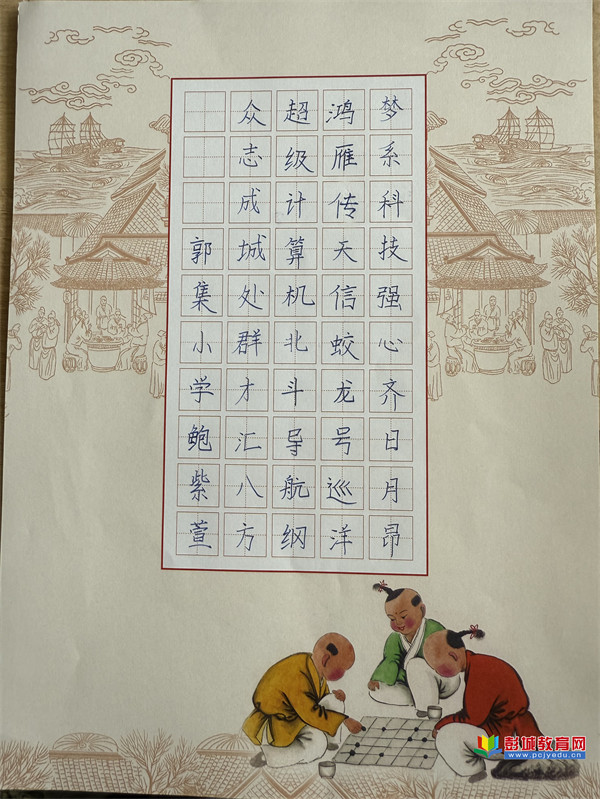 梦系科技强心齐日月昂
鸿雁传天信蛟龙号巡洋
超级计算机北斗导航纲
众志成城处群才汇八方
郭集小学鲍紫萱
彭城教育网
www.pcjyedu.cn